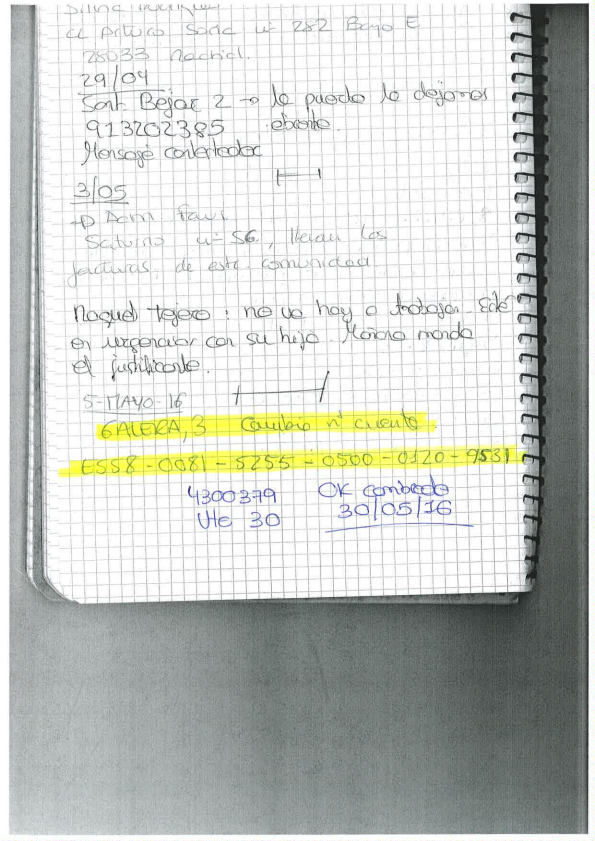 C/ Arturo Soria nº 282 Bajo E
28033 Madrid.
29/04
Sant. Bejar 2 → la puerta la dejaron
913202385 abierta.
Mensaje contestador
3/05
→ Adm Favi
Saturno nº 56, llevan las
facturas de esta comunidad
Raquel Tejero: no va hoy a trabajar. Está
en urgencias con su hijo. Mañana manda
el justificante.
5-MAYO-16
GALERA, 3 Cambio nº cuenta.
ES58-0081-5255-0500-0120-9531
4300379 OK cambiado
Vte 30 30/05/16